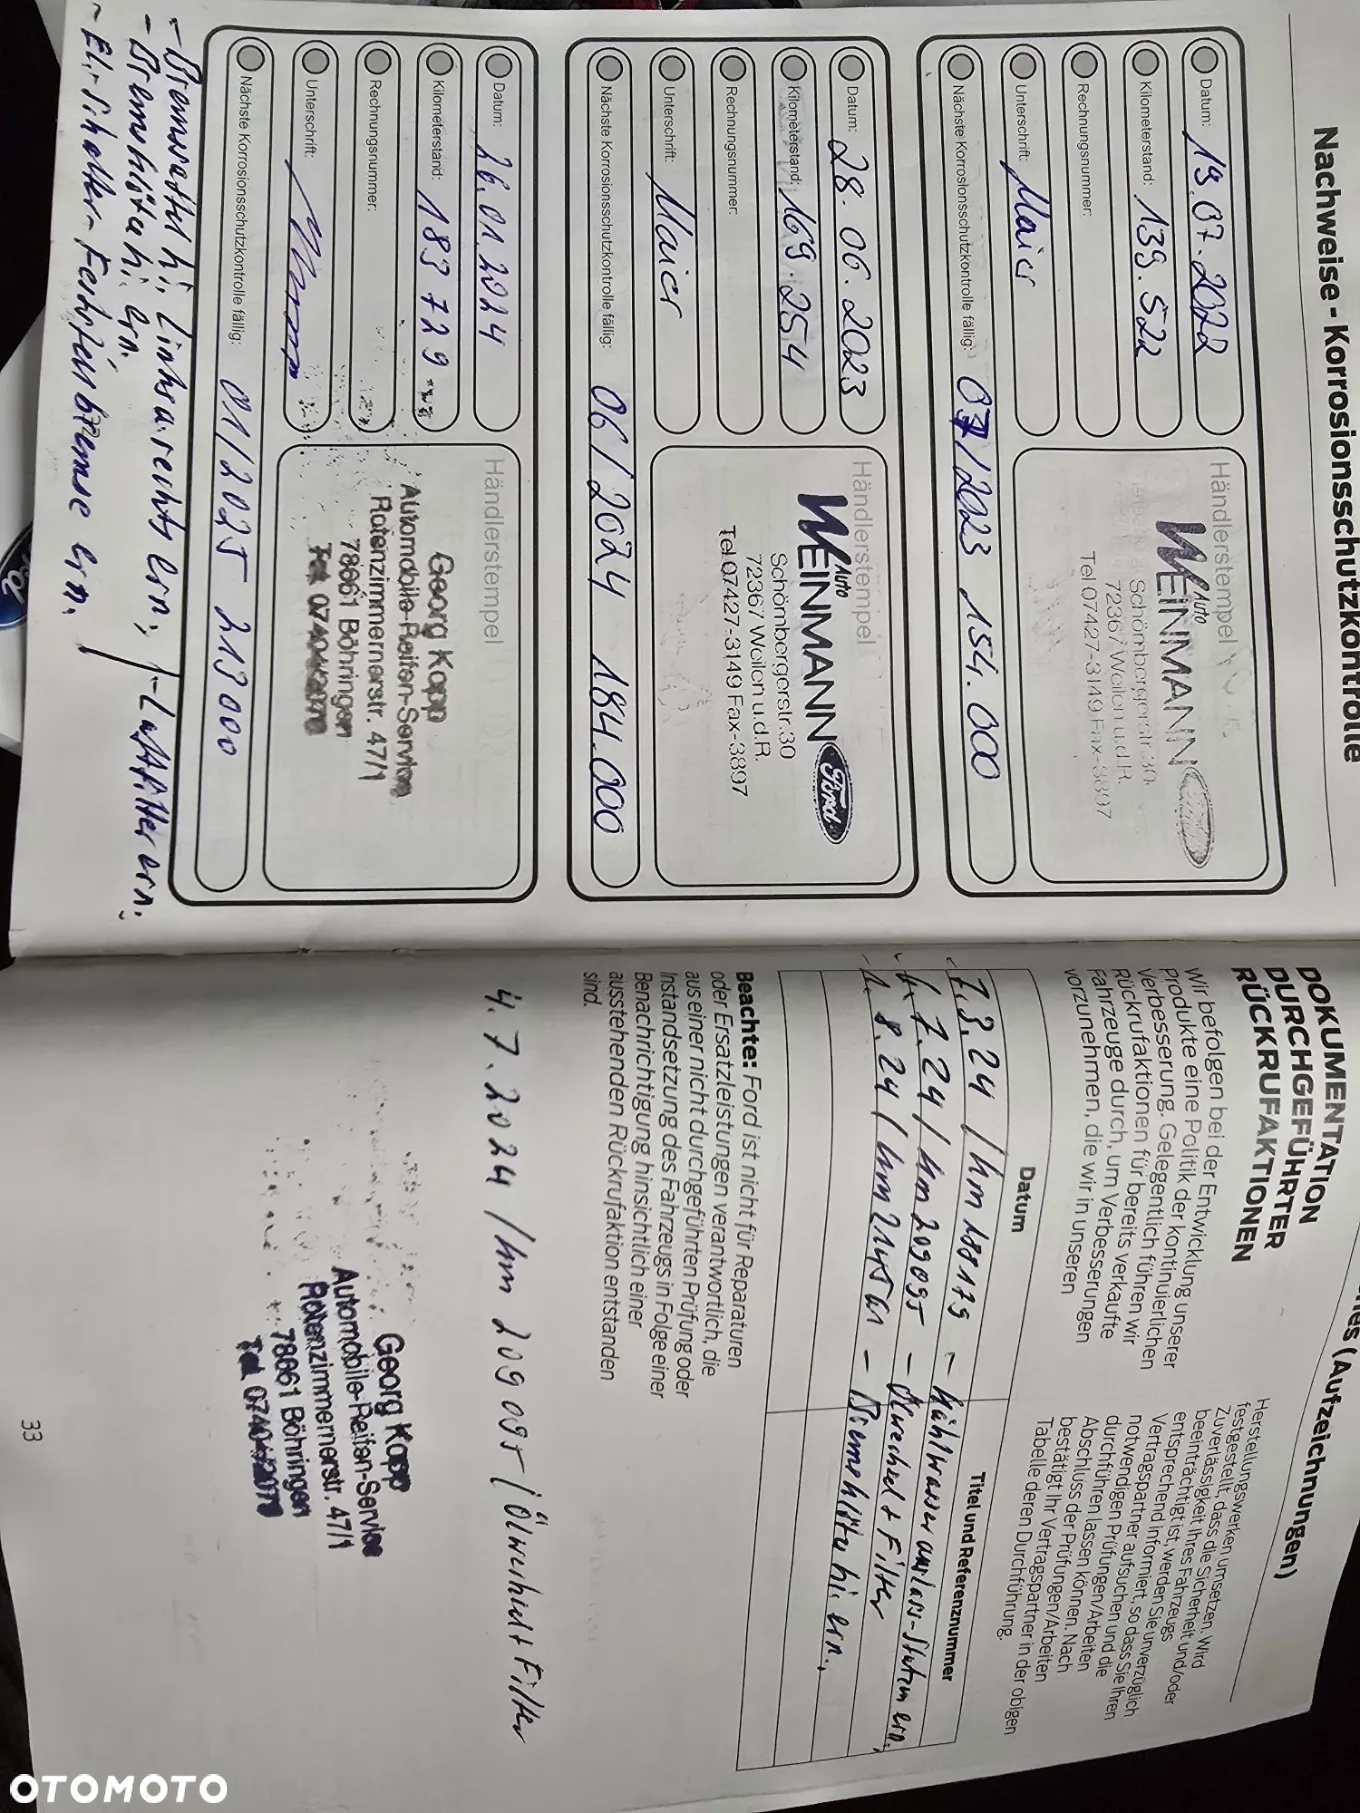 Nachweise - Korrosionsschutzkontrolle
Datum: 19.07.2022
Kilometerstand: 139.522
Rechnungsnummer:
Unterschrift: Maier
Nächste Korrosionsschutzkontrolle fällig: 07/2023 154.000
Händlerstempel
Auto
WEINMANN
Schömbergerstr.30
72367 Weilen u.d.R.
Tel.07427-3149 Fax-3897
Datum: 28.06.2023
Kilometerstand: 169.254
Rechnungsnummer:
Unterschrift: Maier
Nächste Korrosionsschutzkontrolle fällig: 06/2024 184.000
Händlerstempel
Auto
WEINMANN Ford
Schömbergerstr.30
72367 Weilen u.d.R.
Tel.07427-3149 Fax-3897
Datum: 26.01.2024
Kilometerstand: 183729
Rechnungsnummer:
Unterschrift:
Nächste Korrosionsschutzkontrolle fällig: 01/2025 213000
Händlerstempel
Georg Kopp
Automobile-Reifen-Service
Rotenzimmernerstr. 47/1
78661 Böhringen
Tel.
- Bremssattel hi, links u. rechts ern, - Luftfilter ern.
- Bremsklötze hi. ern.
(Aufzeichnungen)
DOKUMENTATION
DURCHGEFÜHRTER
RÜCKRUFAKTIONEN
Wir befolgen bei der Entwicklung unserer
Produkte eine Politik der kontinuierlichen
Verbesserung. Gelegentlich führen wir
Rückrufaktionen für bereits verkaufte
Fahrzeuge durch, um Verbesserungen
vorzunehmen, die wir in unseren
Herstellungswerken umsetzen. Wird
festgestellt, dass die Sicherheit und/oder
Zuverlässigkeit Ihres Fahrzeugs
beeinträchtigt ist, werden Sie unverzüglich
entsprechend informiert, so dass Sie Ihren
Vertragspartner aufsuchen und die
notwendigen Prüfungen/Arbeiten
durchführen lassen können. Nach
Abschluss der Prüfungen/Arbeiten
bestätigt Ihr Vertragspartner in der obigen
Tabelle deren Durchführung.
Datum
Titel und Referenznummer
7.3.24 / km 188179 - Kühlwasser ern.
4.7.24 / km 209095 - Ölwechsel + Filter
1.8.24 / km - hi. ern.
Beachte: Ford ist nicht für Reparaturen
oder Ersatzleistungen verantwortlich, die
aus einer nicht durchgeführten Prüfung oder
Instandsetzung des Fahrzeugs in Folge einer
Benachrichtigung hinsichtlich einer
ausstehenden Rückrufaktion entstanden
sind.
4.7.2024 / km 209095 / Ölwechsel + Filter
Georg Kopp
Automobile-Reifen-Service
Rotenzimmernerstr. 47/1
78661 Böhringen
Tel.
33
OTOMOTO